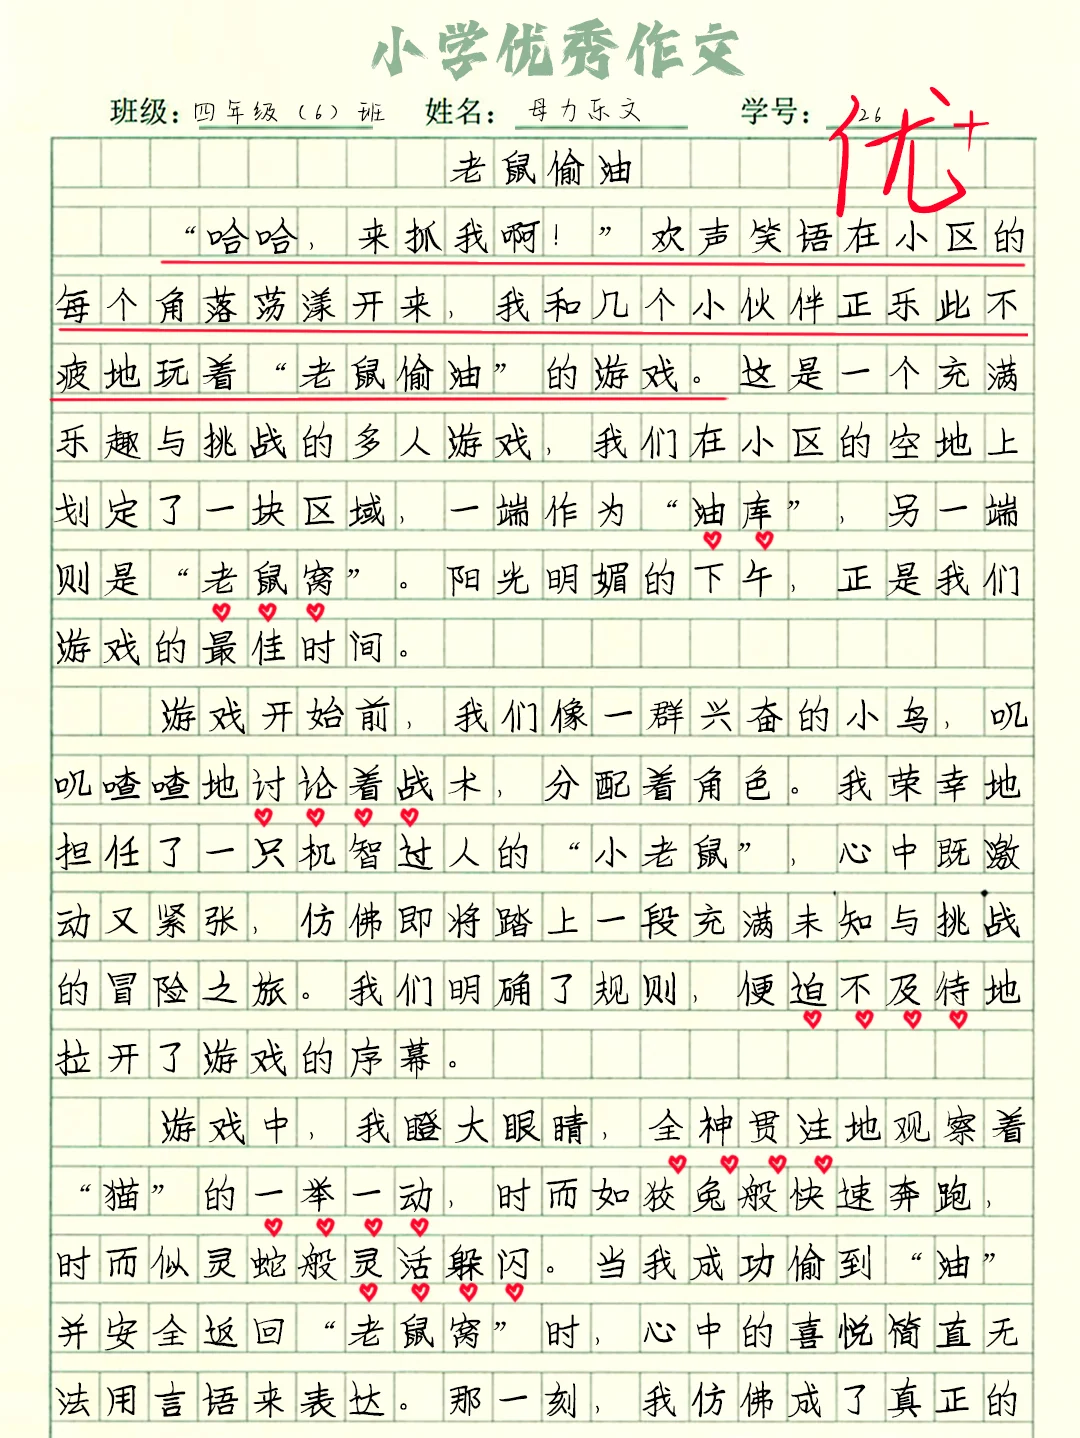 小学优秀作文
班级：四年级（6）班 姓名：母力乐文 学号：26
优+
老鼠偷油
“哈哈，来抓我啊！”欢声笑语在小区的
每个角落荡漾开来，我和几个小伙伴正乐此不
疲地玩着“老鼠偷油”的游戏。这是一个充满
乐趣与挑战的多人游戏，我们在小区的空地上
划定了一块区域，一端作为“油库”，另一端
则是“老鼠窝”。阳光明媚的下午，正是我们
游戏的最佳时间。
游戏开始前，我们像一群兴奋的小鸟，叽
叽喳喳地讨论着战术，分配着角色。我荣幸地
担任了一只机智过人的“小老鼠”，心中既激
动又紧张，仿佛即将踏上一段充满未知与挑战
的冒险之旅。我们明确了规则，便迫不及待地
拉开了游戏的序幕。
游戏中，我瞪大眼睛，全神贯注地观察着
“猫”的一举一动，时而如狡兔般快速奔跑，
时而似灵蛇般灵活躲闪。当我成功偷到“油”
并安全返回“老鼠窝”时，心中的喜悦简直无
法用言语来表达。那一刻，我仿佛成了真正的